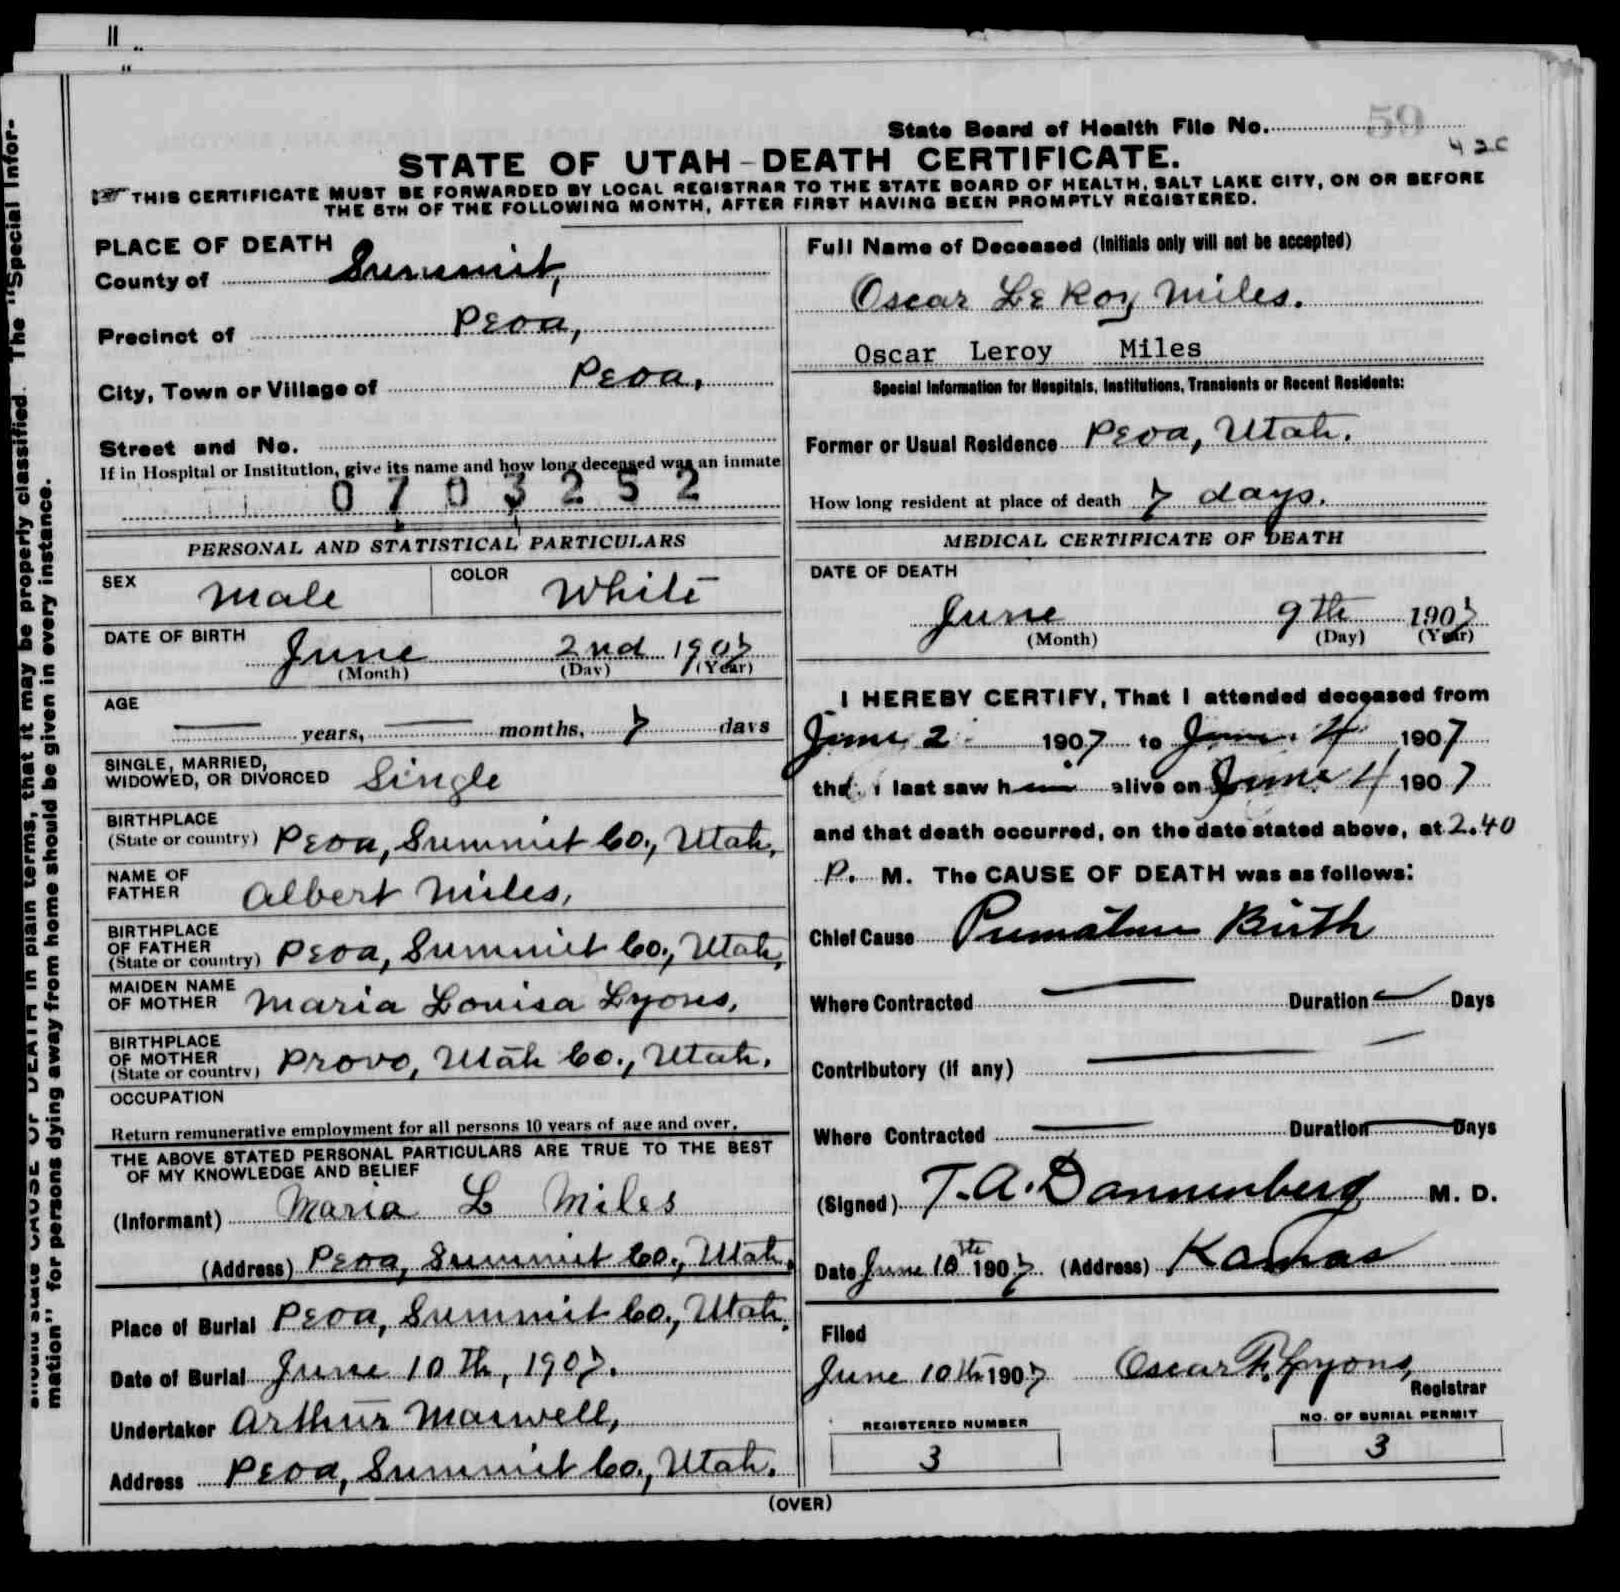 State Board of Health File No. 59
42c
STATE OF UTAH-DEATH CERTIFICATE.
THIS CERTIFICATE MUST BE FORWARDED BY LOCAL REGISTRAR TO THE STATE BOARD OF HEALTH, SALT LAKE CITY, ON OR BEFORE
THE 5TH OF THE FOLLOWING MONTH, AFTER FIRST HAVING BEEN PROMPTLY REGISTERED.
PLACE OF DEATH
County of Summit,
Precinct of Peoa,
City, Town or Village of Peoa,
Street and No.
If in Hospital or Institution, give its name and how long deceased was an inmate
0703252
PERSONAL AND STATISTICAL PARTICULARS
SEX Male COLOR White
DATE OF BIRTH
June 2nd 1907
(Month) (Day) (Year)
AGE
years, months, 7 days
SINGLE, MARRIED,
WIDOWED, OR DIVORCED Single
BIRTHPLACE
(State or country) Peoa, Summit Co., Utah,
NAME OF
FATHER Albert Miles,
BIRTHPLACE
OF FATHER
(State or country) Peoa, Summit Co., Utah,
MAIDEN NAME
OF MOTHER Maria Louisa Lyons,
BIRTHPLACE
OF MOTHER
(State or country) Provo, Utah Co., Utah.
OCCUPATION
Return remunerative employment for all persons 10 years of age and over.
THE ABOVE STATED PERSONAL PARTICULARS ARE TRUE TO THE BEST
OF MY KNOWLEDGE AND BELIEF
(Informant) Maria L Miles
(Address) Peoa, Summit Co., Utah.
Place of Burial Peoa, Summit Co., Utah.
Date of Burial June 10th, 1907.
Undertaker Arthur Maxwell,
Address Peoa, Summit Co., Utah.
Full Name of Deceased (Initials only will not be accepted)
Oscar LeRoy Miles.
Oscar Leroy Miles
Special Information for Hospitals, Institutions, Transients or Recent Residents:
Former or Usual Residence Peoa, Utah.
How long resident at place of death 7 days.
MEDICAL CERTIFICATE OF DEATH
DATE OF DEATH
June 9th 1907
(Month) (Day) (Year)
I HEREBY CERTIFY, That I attended deceased from
June 2 1907 to June 4 1907
that I last saw him alive on June 4 1907
and that death occurred, on the date stated above, at 2.40
P. M. The CAUSE OF DEATH was as follows:
Chief Cause Premature Birth
Where Contracted Duration Days
Contributory (if any)
Where Contracted Duration Days
(Signed) T. A. Dannenberg M. D.
Date June 10th 1907 (Address) Kamas
Filed
June 10th 1907 Oscar F. Lyons,
Registrar
REGISTERED NUMBER
3
NO. OF BURIAL PERMIT
3
(OVER)
should state CAUSE OF DEATH in plain terms, that it may be properly classified. The "Special Infor-
mation" for persons dying away from home should be given in every instance.